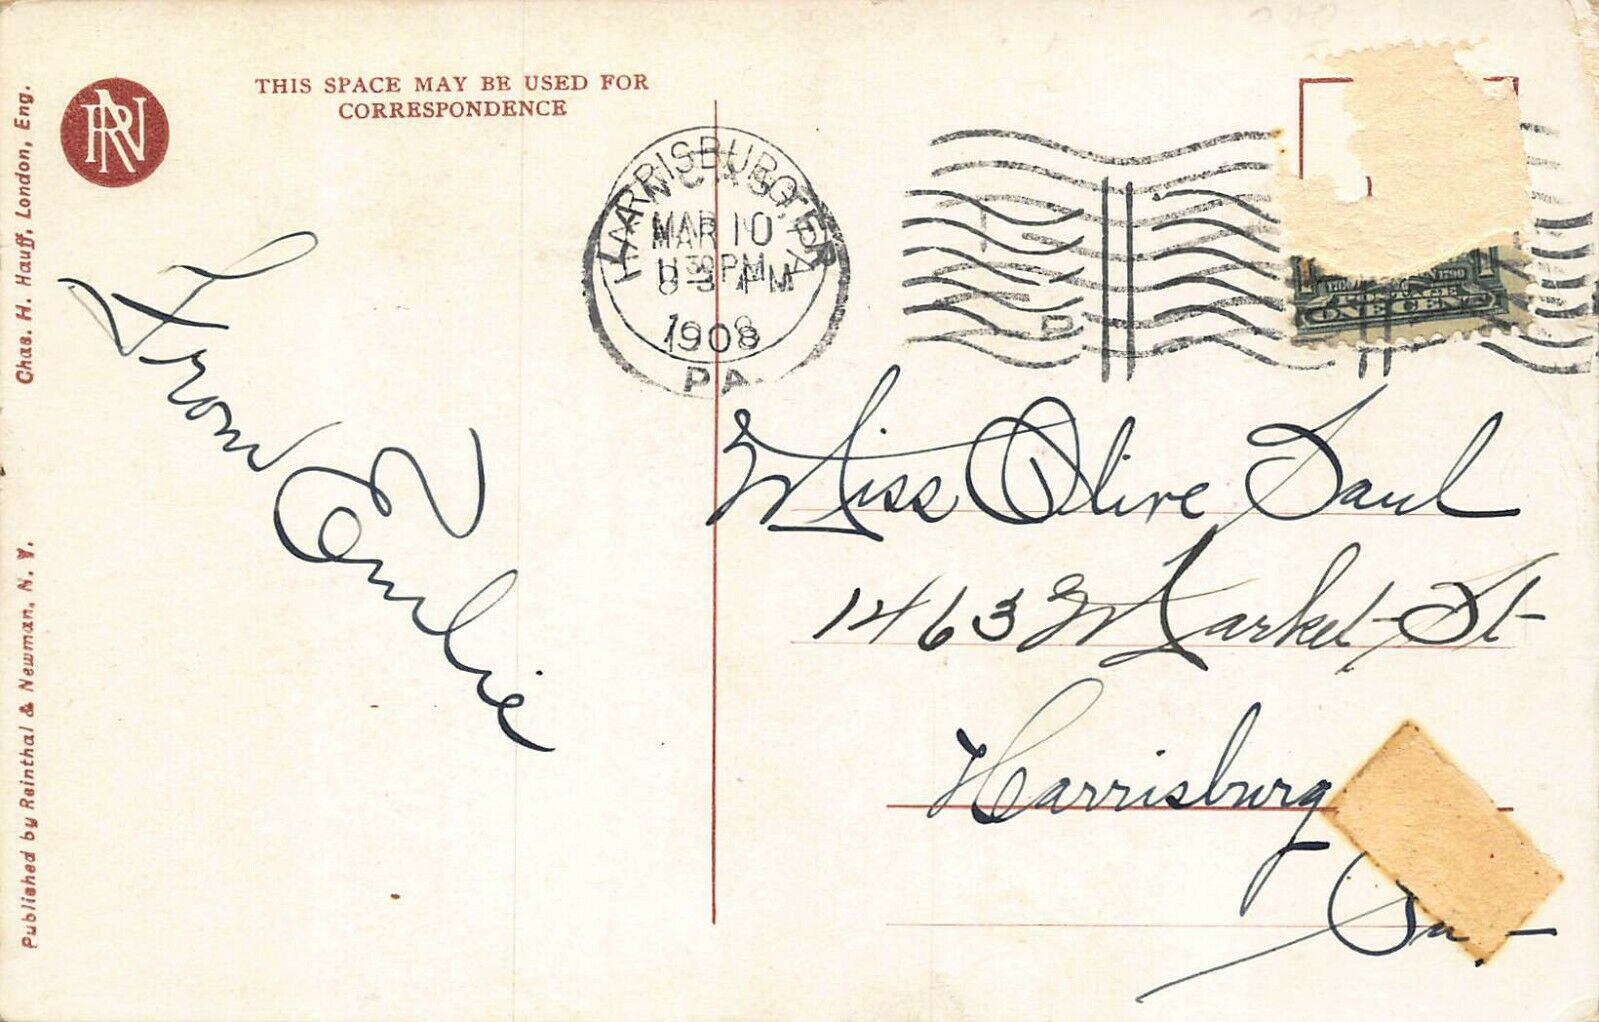 THIS SPACE MAY BE USED FOR
CORRESPONDENCE
RN
Chas. H. Hauff, London, Eng.
Published by Reinthal & Newman, N. Y.
HARRISBURG, PA.
LANCASTER
MAR 10
1908
PA
ONE CENT
From
Emlie
Miss Olive Saul
1463 Market St
Harrisburg
Pa